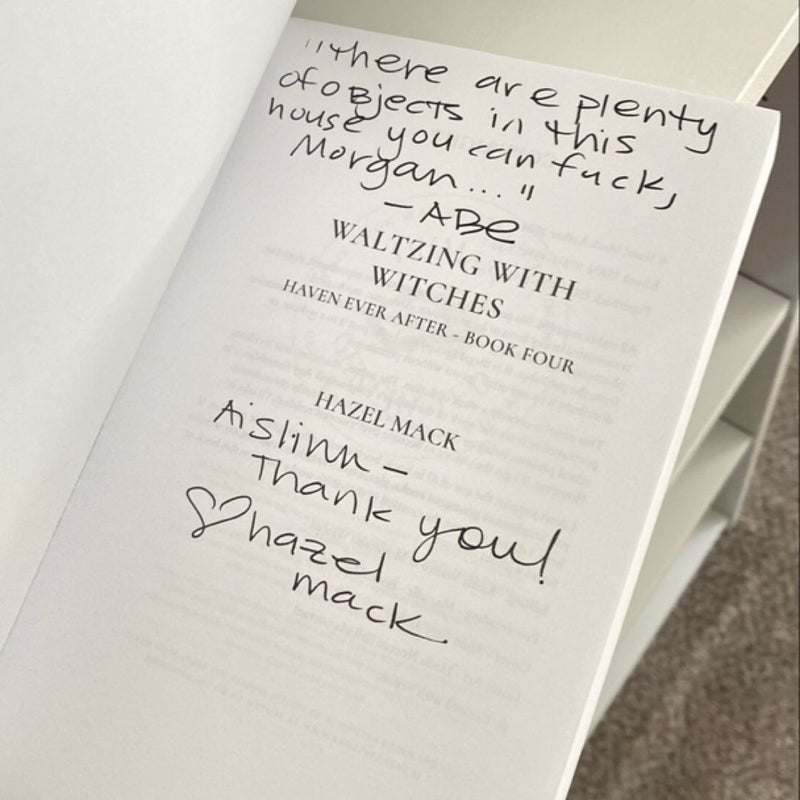 "there are plenty
of oBjects in this
house you can fuck,
Morgan..."
- ABe
WALTZING WITH
WITCHES
HAVEN EVER AFTER - BOOK FOUR
HAZEL MACK
Aislinn -
Thank you!
♡hazel
mack